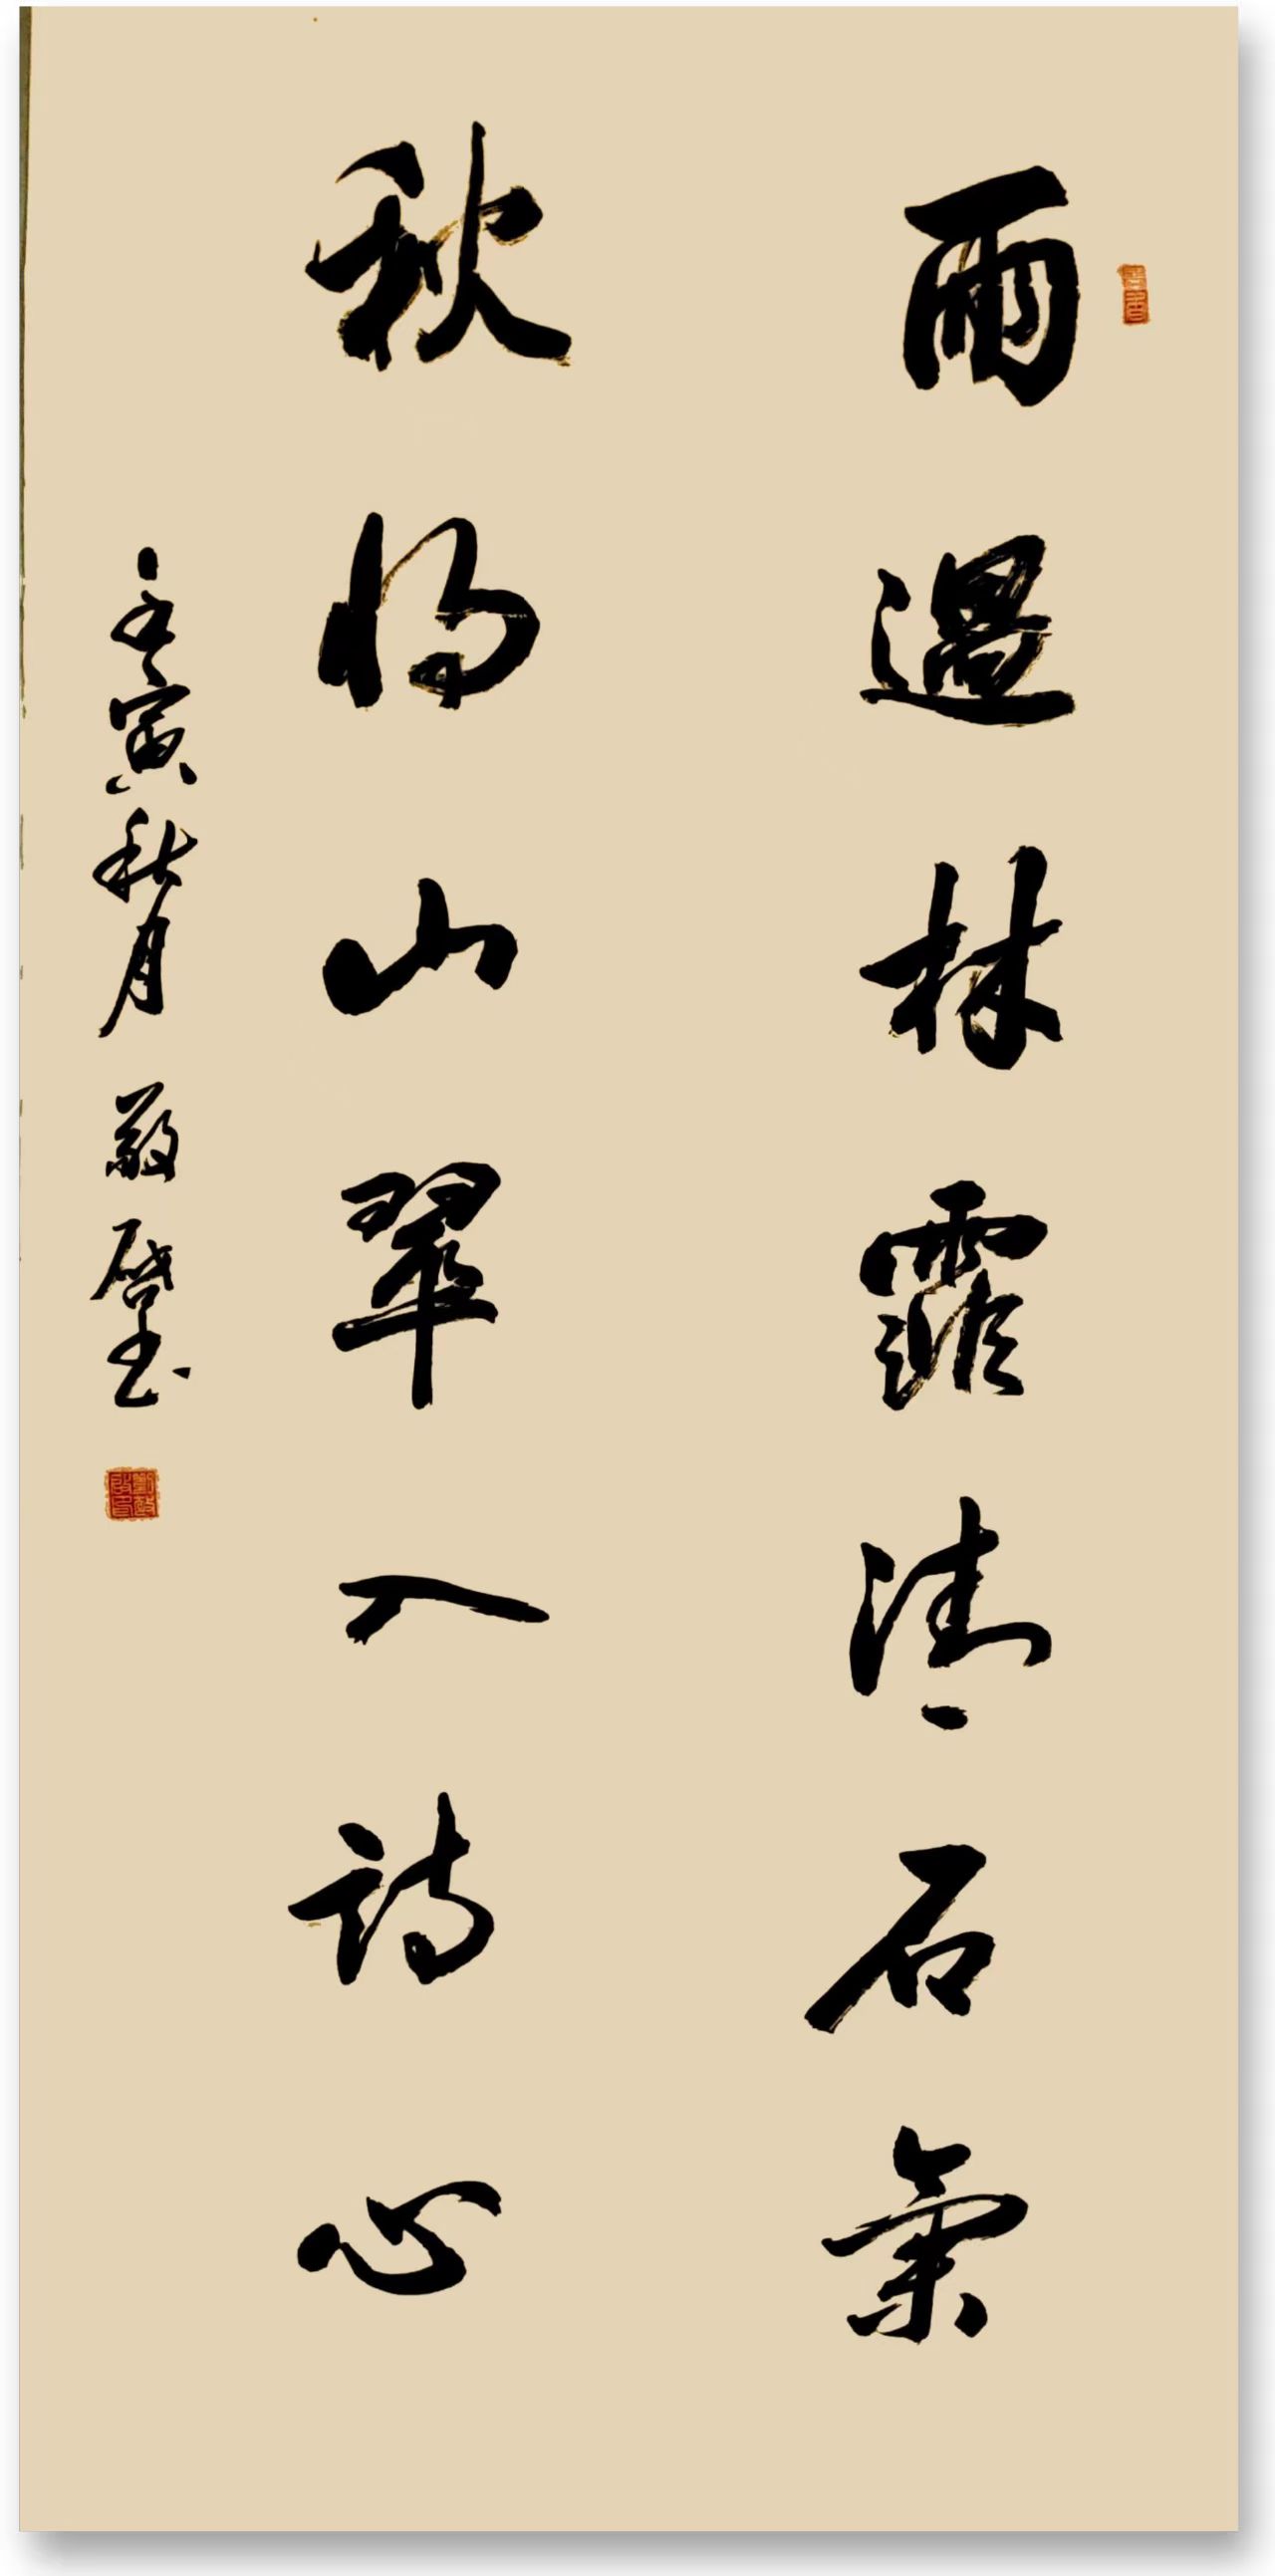 雨過林霏清石氣
秋將山翠入詩心
壬寅秋月 敬啓玉